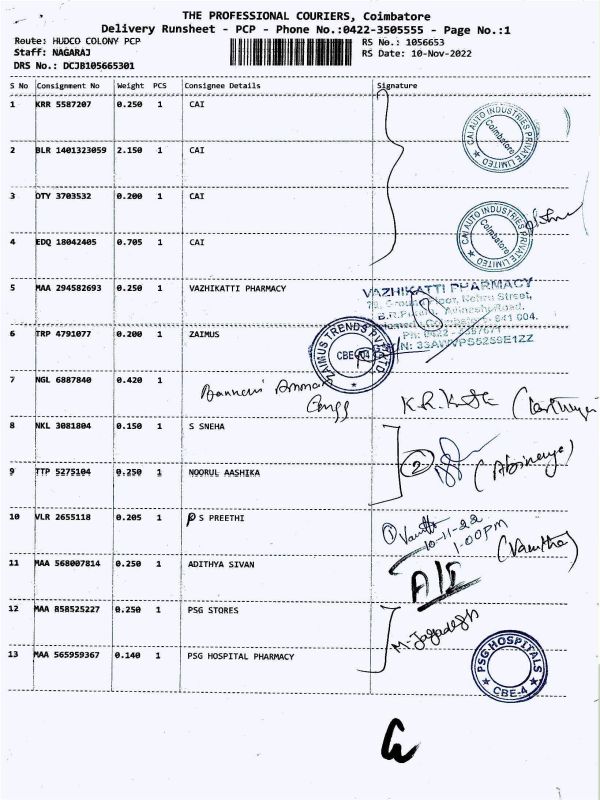 THE PROFESSIONAL COURIERS, Coimbatore
Delivery Runsheet - PCP - Phone No.:0422-3505555 - Page No.:1
Route: HUDCO COLONY PCP RS No.: 1056653
Staff: NAGARAJ RS Date: 10-Nov-2022
DRS No.: DCJB105665301
S No Consignment No Weight PCS Consignee Details Signature
1 KRR 5587207 0.250 1 CAI
CAI AUTO INDUSTRIES PRIVATE LIMITED Coimbatore
2 BLR 1401323059 2.150 1 CAI
3 OTY 3703532 0.200 1 CAI
CAI AUTO INDUSTRIES PRIVATE LIMITED Coimbatore
4 EDQ 18042405 0.705 1 CAI
5 MAA 294582693 0.250 1 VAZHIKATTI PHARMACY
VAZHIKATTI PHARMACY
Ground Floor, Nehru Street,
Avinashi Road,
6 TRP 4791077 0.200 1 ZAIMUS
ZAIMUS TRENDS PVT LTD CBE
7 NGL 6887840 0.420 1 Bannari Amman
Engg K.R.
8 NKL 3081804 0.150 1 S SNEHA
2 (Abinaya)
9 TTP 5275104 0.250 1 NOORUL AASHIKA
10 VLR 2655118 0.205 1 P S PREETHI
1 10-11-22
1.00PM (Vanitha)
11 MAA 568007814 0.250 1 ADITHYA SIVAN
A/I
12 MAA 858525227 0.250 1 PSG STORES
M. Jagadesh
13 MAA 565959367 0.140 1 PSG HOSPITAL PHARMACY
PSG HOSPITALS CBE-4